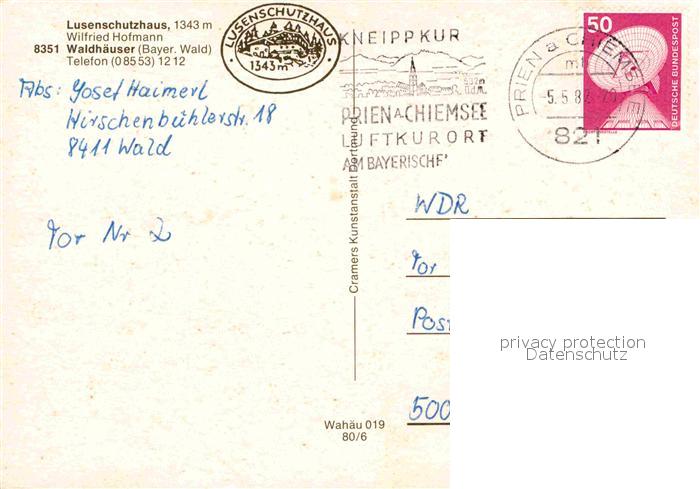 Lusenschutzhaus, 1343 m
Wilfried Hofmann
8351 Waldhäuser (Bayer. Wald)
Telefon (0 85 53) 12 12
LUSENSCHUTZHAUS
1343 m
KNEIPPKUR
PRIEN A. CHIEMSEE
LUFTKURORT
AM BAYERISCHE
PRIEN a CHIEMSEE
821
50
DEUTSCHE BUNDESPOST
Abs: Josef Haimerl
Hirschenbühlerstr. 18
8411 Wald
Tor Nr 2
WDR
Tor
Post
500
Cramers Kunstanstalt Dortmund
Wahäu 019
80/6
privacy protection
Datenschutz